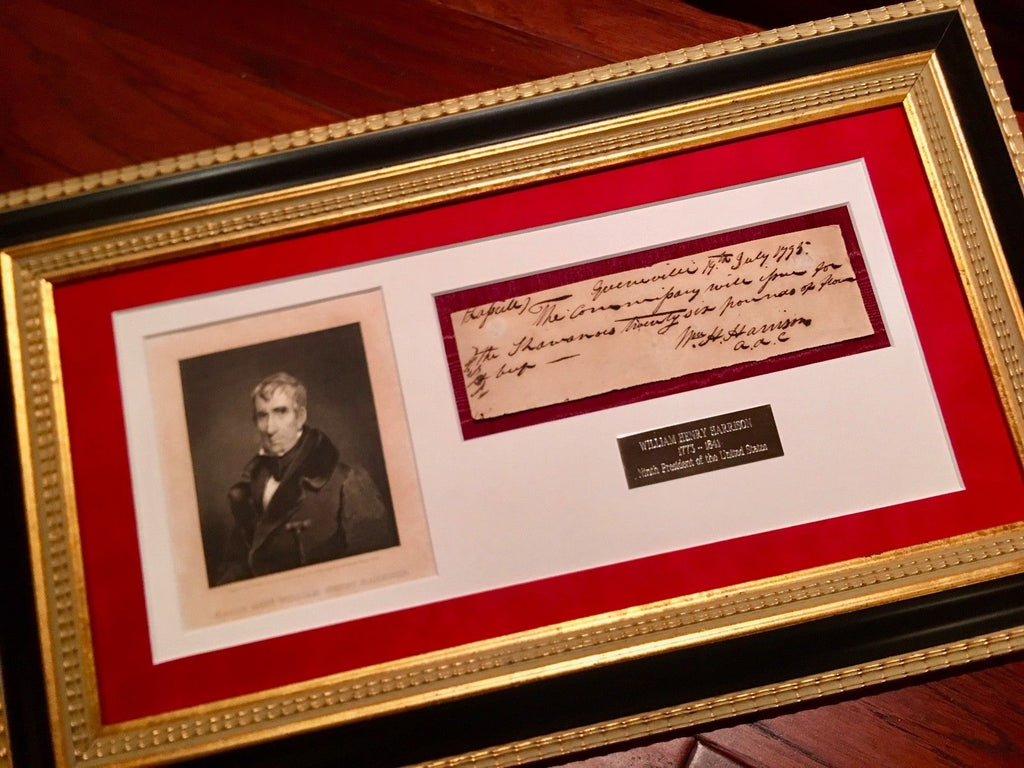 Greenville 19th July 1795
The Commissary will issue for
the Shawanoes twenty six pounds of flour
& beef —
Wm. H. Harrison
a.d.c
WILLIAM HENRY HARRISON
1773 – 1841
Ninth President of the United States
MAJOR GENL WILLIAM HENRY HARRISON.